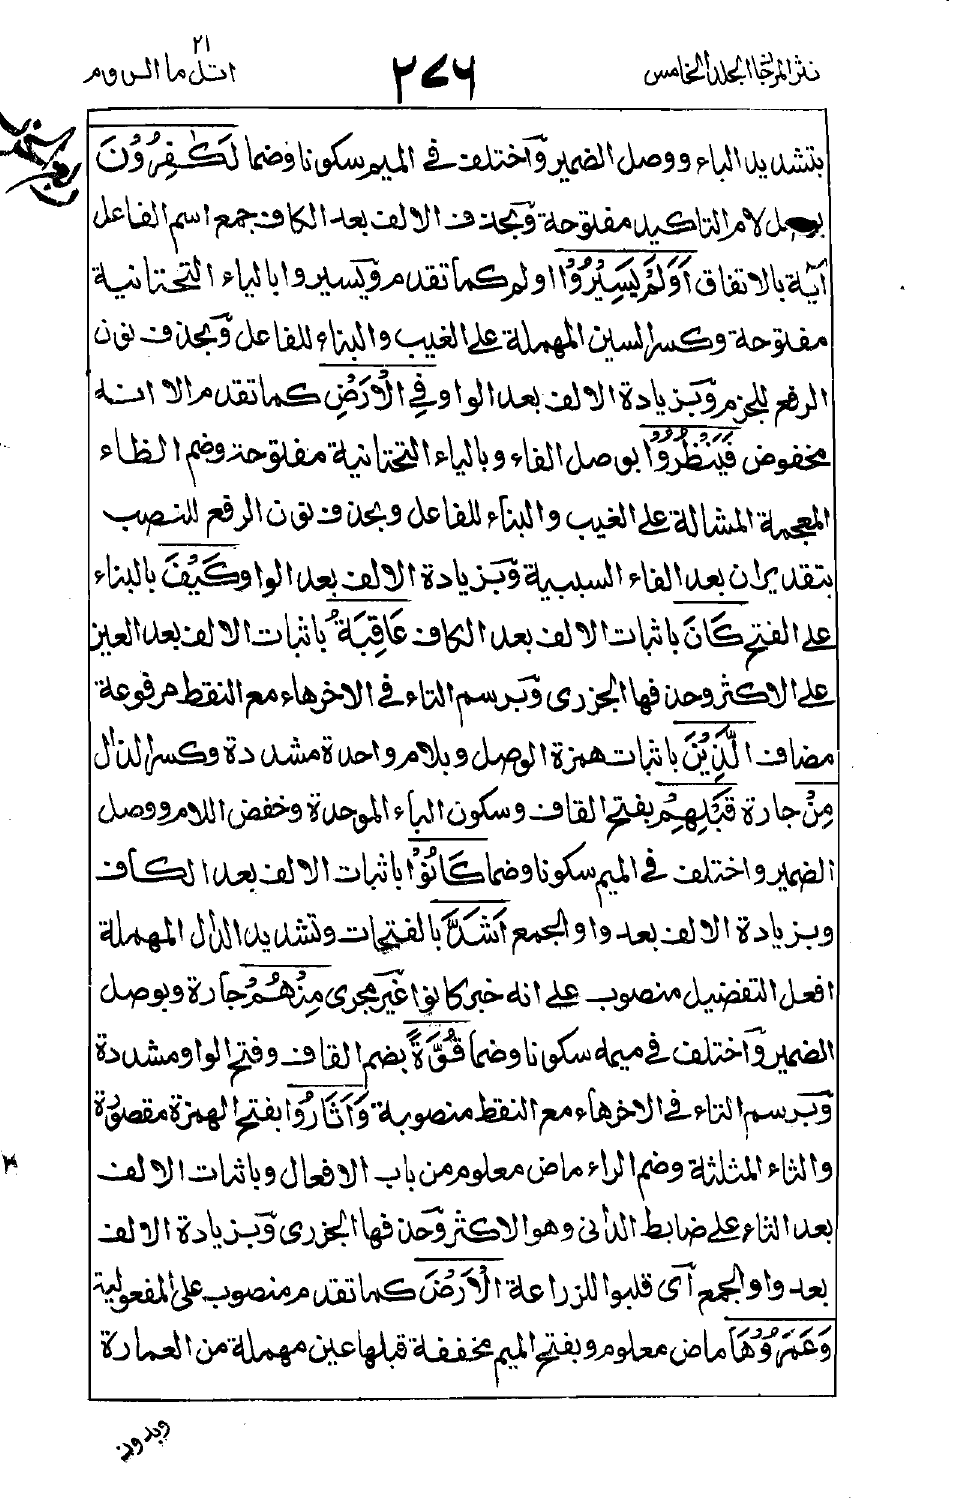 ٢١
نثر المرجان الجلد الخامس
٢٧٦
اتل ما الروم
بتشديد الباء ووصل الضمير وَاختلف في الميم سكونا وضما لَكٰفِرُوْنَ
بوصل لام التاكيد مفتوحة وَبحذف الالف بعد الكاف جمع اسم الفاعل
آية بالاتفاق أَوَلَمْ يَسِيْرُوْا اولم كما تقدم وَيسيروا بالياء التحتانية
مفتوحة وكسر السين المهملة على الغيب والبناء للفاعل وَبحذف نون
الرفع للجزم وَبزيادة الالف بعد الواو فِي الْأَرْضِ كما تقدم الا انه
مخفوض فَيَنْظُرُوْا بوصل الفاء وبالياء التحتانية مفتوحة وضم الظاء
المعجمة المشالة على الغيب والبناء للفاعل وبحذف نون الرفع للنصب
بتقدير ان بعد الفاء السببية وَبزيادة الالف بعد الواو كَيْفَ بالبناء
على الفتح كَانَ باثبات الالف بعد الكاف عَاقِبَةُ باثبات الالف بعد العين
على الاكثر وحذفها الجزري وَبرسم التاء في الاخر هاء مع النقط مرفوعة
مضاف الَّذِيْنَ باثبات همزة الوصل وبلام واحدة مشددة وكسر الذال
مِنْ جارة قَبْلِهِمْ بفتح القاف وسكون الباء الموحدة وخفض اللام ووصل
الضمير واختلف في الميم سكونا وضما كَانُوْا باثبات الالف بعد الكاف
وبزيادة الالف بعد واو الجمع اَشَدَّ بالفتحات وتشديد الدال المهملة
افعل التفضيل منصوب على انه خبر كانوا غَيْر مجرى مِنْهُمْ جارة وبوصل
الضمير وَاختلف في ميمه سكونا وضما قُوَّةً بضم القاف وفتح الواو مشددة
وَبرسم التاء في الاخر هاء مع النقط منصوبة وَاَثَارُوا بفتح الهمزة مقصورة
والثاء المثلثة وضم الراء ماض معلوم من باب الافعال وباثبات الالف
بعد الثاء على ضابط الداني وهو الاكثر وَحذفها الجزري وَبزيادة الالف
بعد واو الجمع آى قلبوا للزراعة الْأَرْضَ كما تقدم منصوب على المفعولية
وَعَمَرُوْهَا ماض معلوم وبفتح الميم مخففة قبلها عين مهملة من العمارة